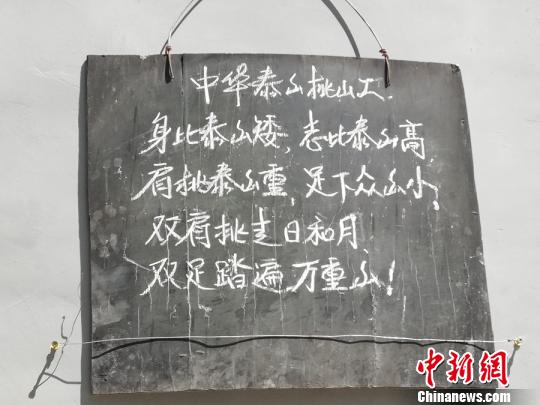 中华泰山挑山工.
身比泰山矮，志比泰山高，
肩挑泰山重，足下众山小。
双肩挑走日和月，
双足踏遍万重山！
中新网
Chinanews.com